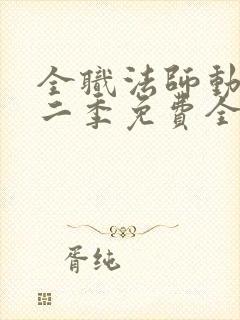 全職法師動
二季免費全
胥纯